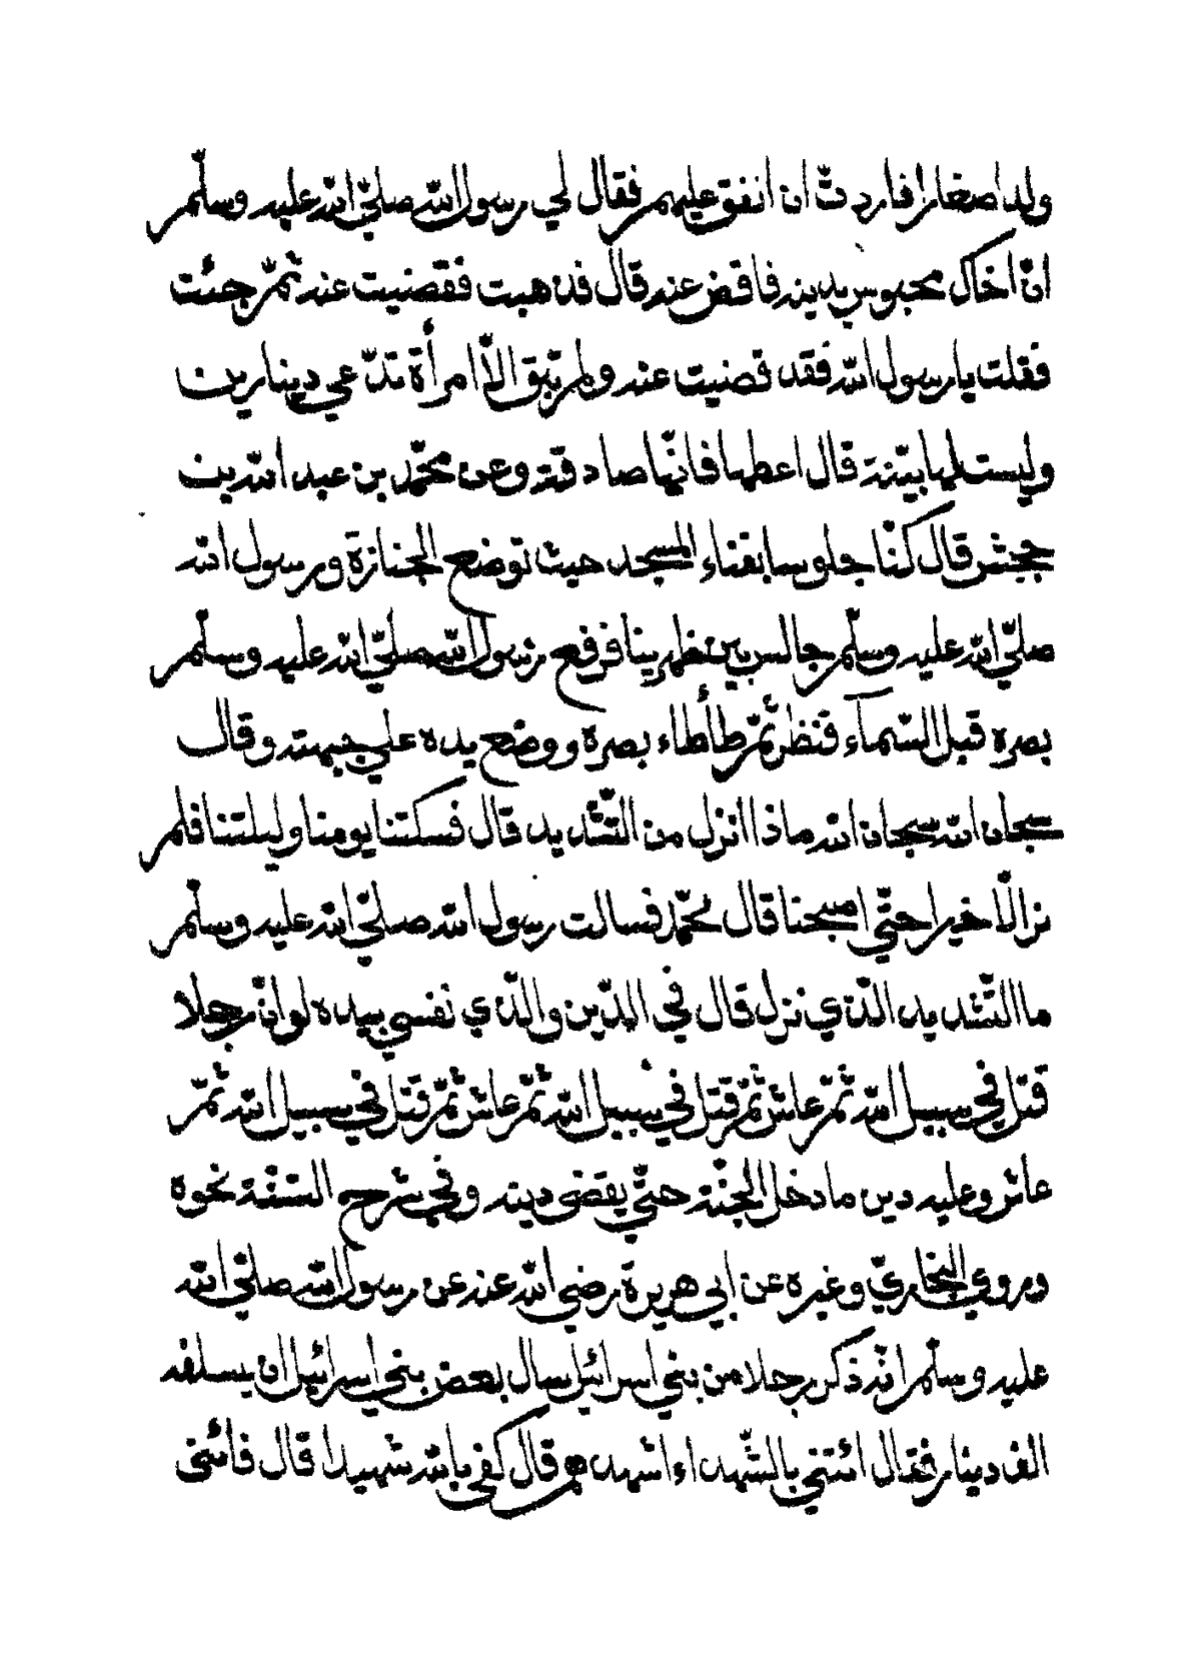 ولدا صغارا فاردتّ ان انفق عليهم فقال لي رسول الله صلّي الله عليه وسلّم
انّ اخاك محبوس بدينه فاقض عنه قال فذهبت فقضيت عنه ثمّ جئت
فقلت يا رسول الله فقد قضيت عنه ولم تبق الّا امرأة تدّعي دينارين
وليست لها بيّنة قال اعطها فانّها صادقة وعن محمّد بن عبد الله بن
جحش قال كنّا جلوسا بفناء المسجد حيث توضع الجنازة ورسول الله
صلّي الله عليه وسلّم جالس بين ظهرينا فرفع رسول الله صلّي الله عليه وسلّم
بصره قبل السّمآء فنظر ثمّ طأطاء بصره ووضع يده علي جبهته وقال
سبحان الله سبحان الله ماذا انزل من التّشديد قال فسكتنا يومنا وليلتنا فلم
نر الّا خيرا حتّي اصبحنا قال محمّد فسالت رسول الله صلّي الله عليه وسلّم
ما التّشديد الّذي نزل قال في الدّين والّذي نفسي بيده لو انّ رجلا
قتل في سبيل الله ثمّ عاش ثمّ قتل في سبيل الله ثمّ عاش ثمّ قتل في سبيل الله ثمّ
عاش وعليه دين ما دخل الجنّة حتّي يقضى دينه وفي شرح السّنّة نحوه
وروي البخاريّ وغيره عن ابي هريرة رضي الله عنه عن رسول الله صلّي الله
عليه وسلّم انّه ذكر رجلا من بني اسرائيل سال بعض بني اسرائيل ان يسلفه
الف دينار فقال ائتني بالشّهداء اشهدهم قال كفى بالله شهيدا قال فائتني